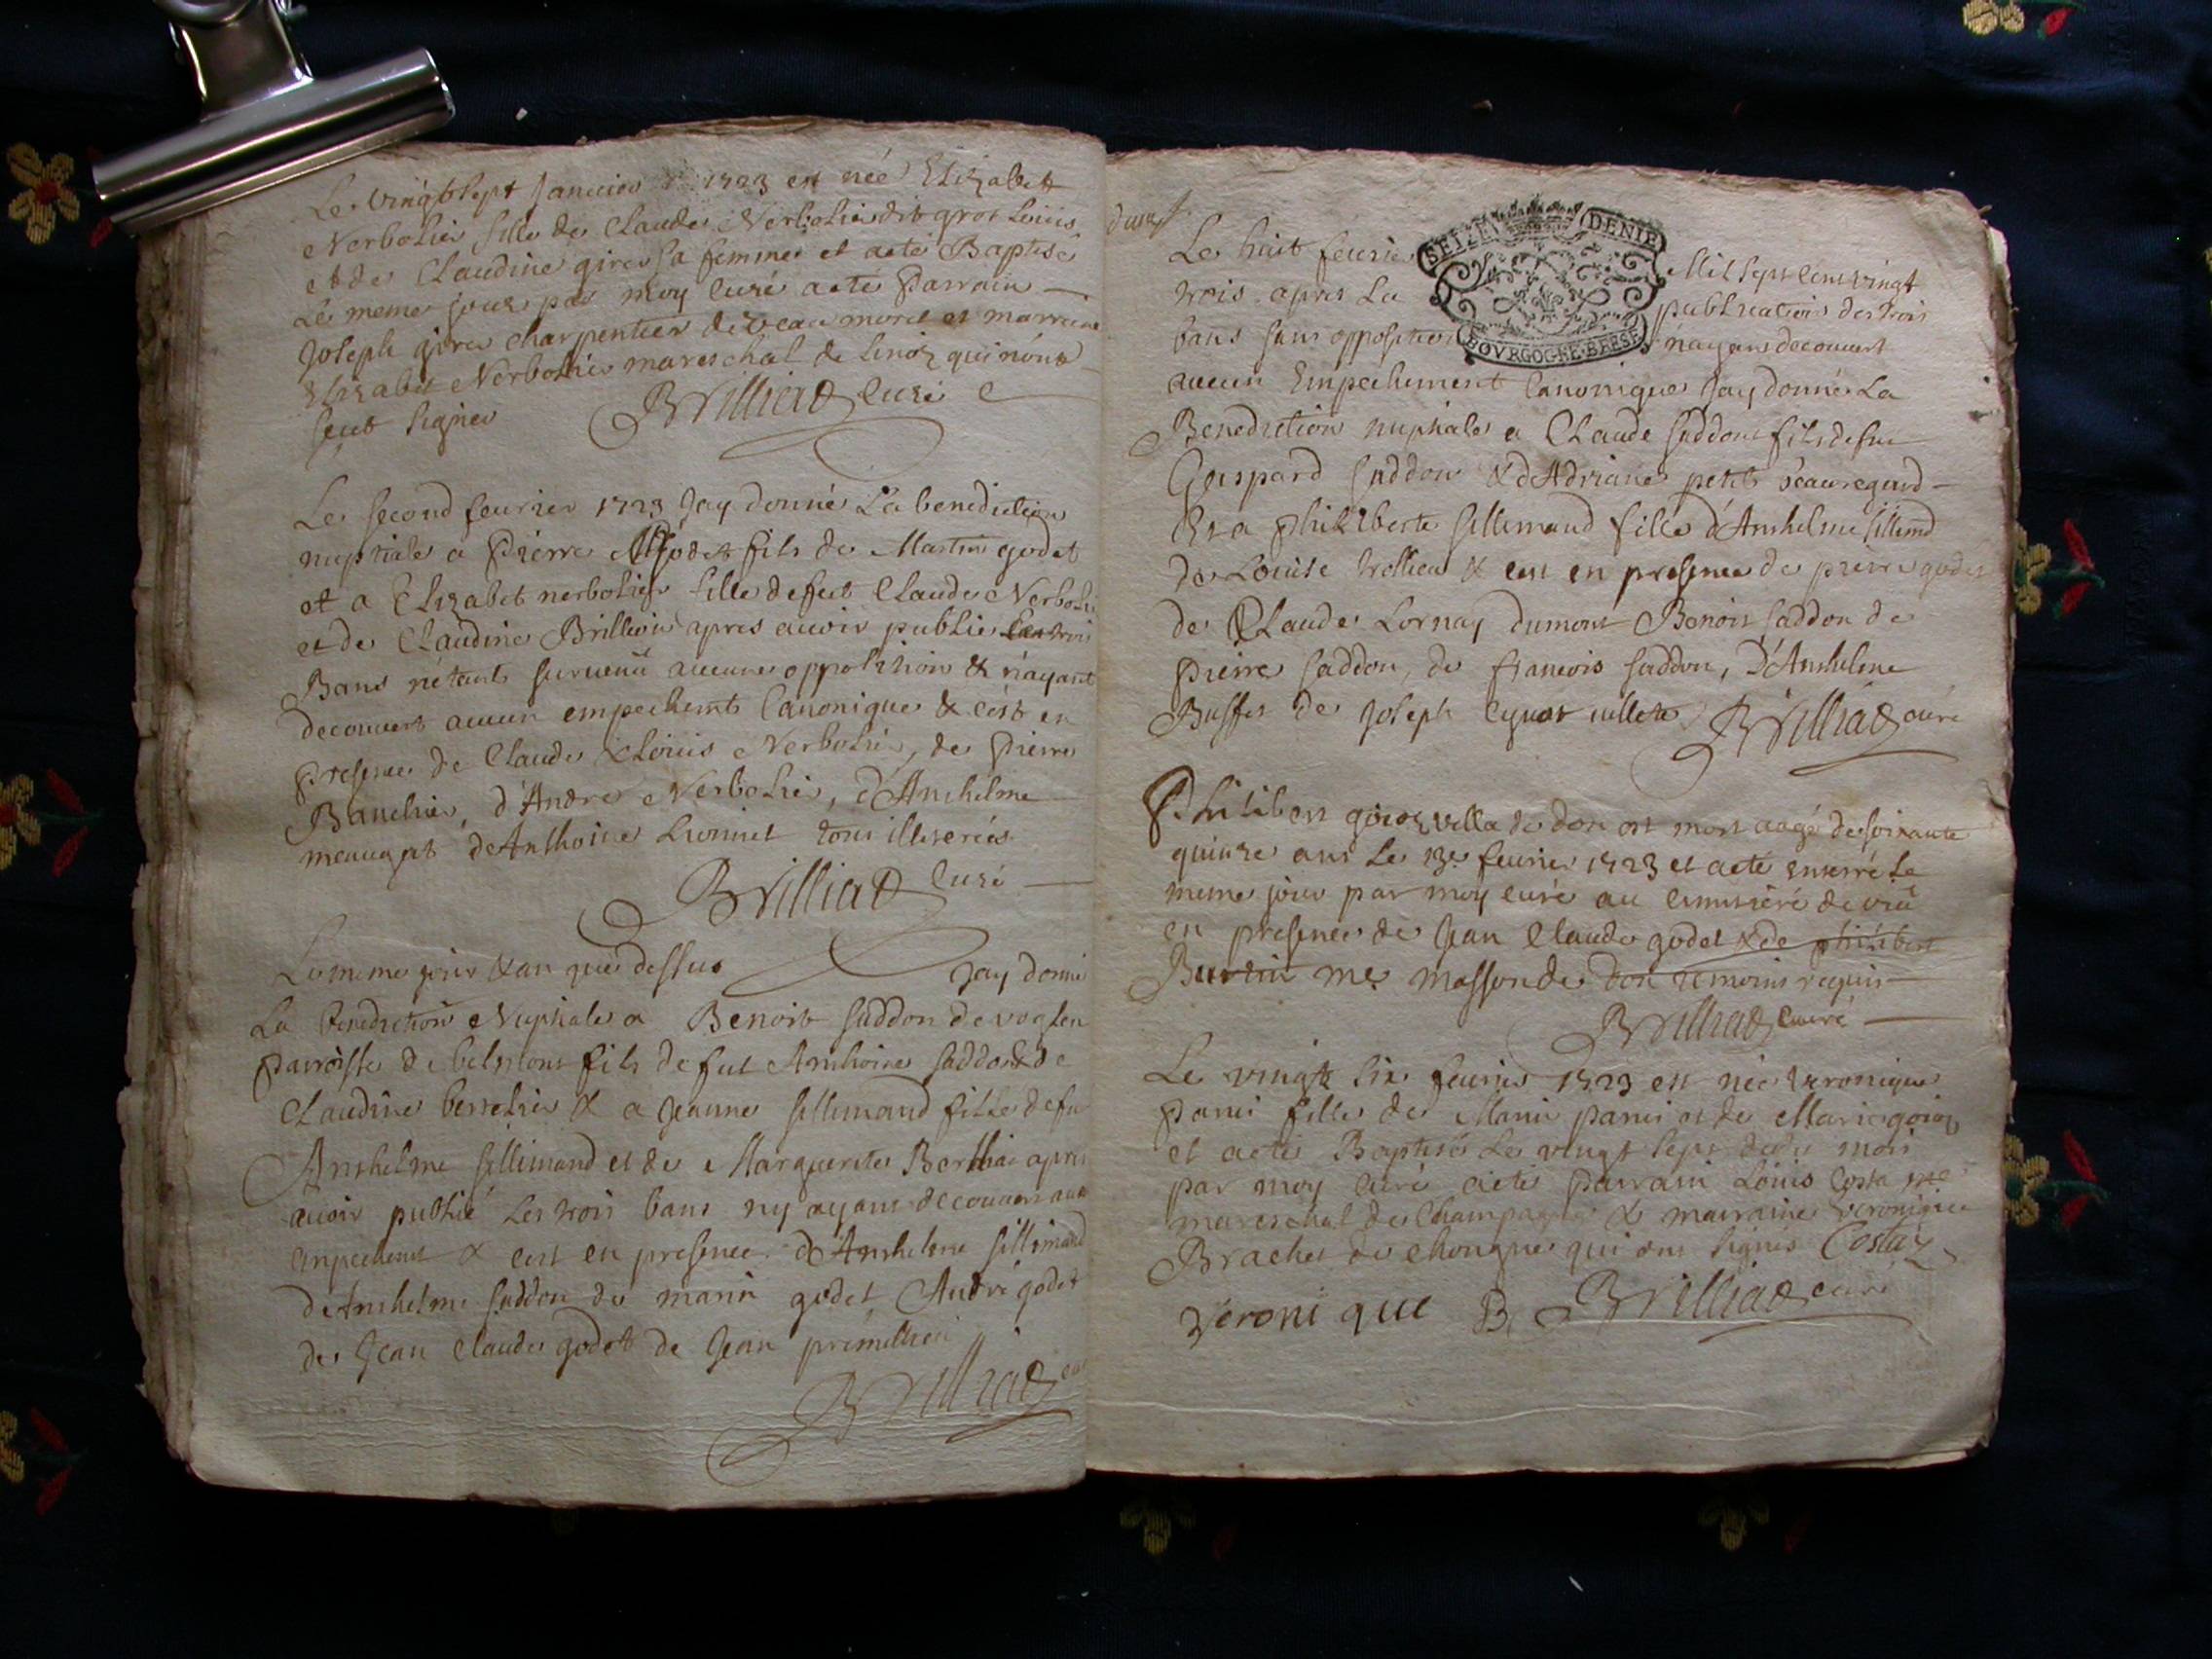 Le vingt sept Janvier 1723 est née Elizabet
Nerbolier fille de Claude Nerbolier dit gros Louis
et de Claudine girer sa femme et acté Baptisé
Le meme jour par moy curé acté Parrain
Joseph girer charpentier de veau mord et marraine
Elizabet Nerbolier mareschal de qui nont
seut signer Brilliat curé
Le second feurier 1723 Jay donné La benediction
nuptiale a Pierre godet fils de Martin godet
et a Elizabet nerbolier fille de feut Claude Nerbolie
et de Claudine Brillion apres avoir publié Les trois
Bans n'étant survenu aucune opposition & n'ayant
decouvert aucun empechemt Canonique & cest en
presence de Claude & Louis Nerbolier, de Pierre
Banchier, d'André Nerbolier, d'Anthelme
de Anthoine Lionnet tous illeterés
Brilliat curé
Le meme jour & an que dessus Jay donné
La Benediction Nuptiale a Benoit Saddon de voglen
Parroisse de belmont fils de fut Anthoine Saddon & de
Claudine berrelier & a Jeanne Sillimand fille de fu
Anthelme Sillimand et de Marguerite Berthier apres
avoir publié Les trois bans ny ayant decouvert auc
enpechemt & cest en presence d'Anthelme Sillimand
de Anthelme Saddon de marin godet André godet
de Jean Claude godet de Jean premillieu
Brilliat cu
SEIZE DENIE
BOURGOGNE BRESSE
Le huit feurier Mil sept cent vingt
trois apres La publication des trois
bans sans opposition n'ayant decouvert
aucun Empechement Canonique Jay donné La
Benediction nuptiale a Claude Saddon fils de fut
Gaspard Saddon & d'Adriane petit beauregard
Et a Philiberte Sillimand fille d'Anthelme Sillimd
de Louise trollieu & cest en presence de pierre godet
de Claude Lornay dumont Benoit Saddon de
Pierre Saddon, de francois Saddon, D'Anthelme
Buffet de Joseph Brilliat curé
Philibert goioz de don est mort aagé de soixante
quinze ans Le 13e feurier 1723 et acté enterré Le
meme jour par moy curé au cimitiere de
en presence de Jean Claude godet & de philibert
Burtin me masson de don temoins requis
Brilliat curé
Le vingt six feurier 1723 est née Veronique
Panis fille de Marin panis et de Marie goioz
et acté Baptisé Le vingt sept dudit mois
par moy curé acté parrain Louis Costa me
mareschal de Champagne & marraine Veronique
Brachet de chongne qui ont signés Costaz
Veroni que B Brilliat curé